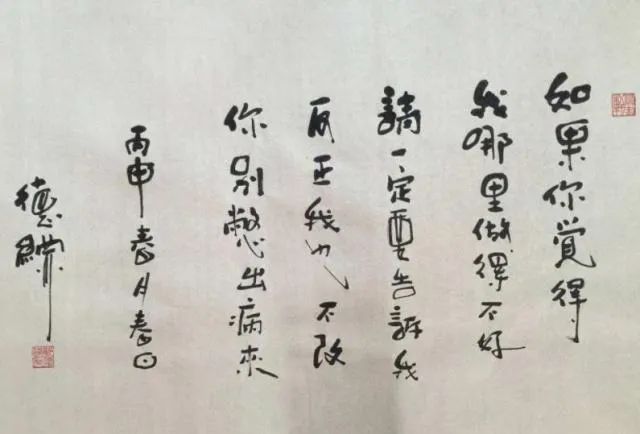 如果你觉得
我哪里做得不好
请一定要告诉我
反正我也不改
你别憋出病来
丙申春月春日
德骥